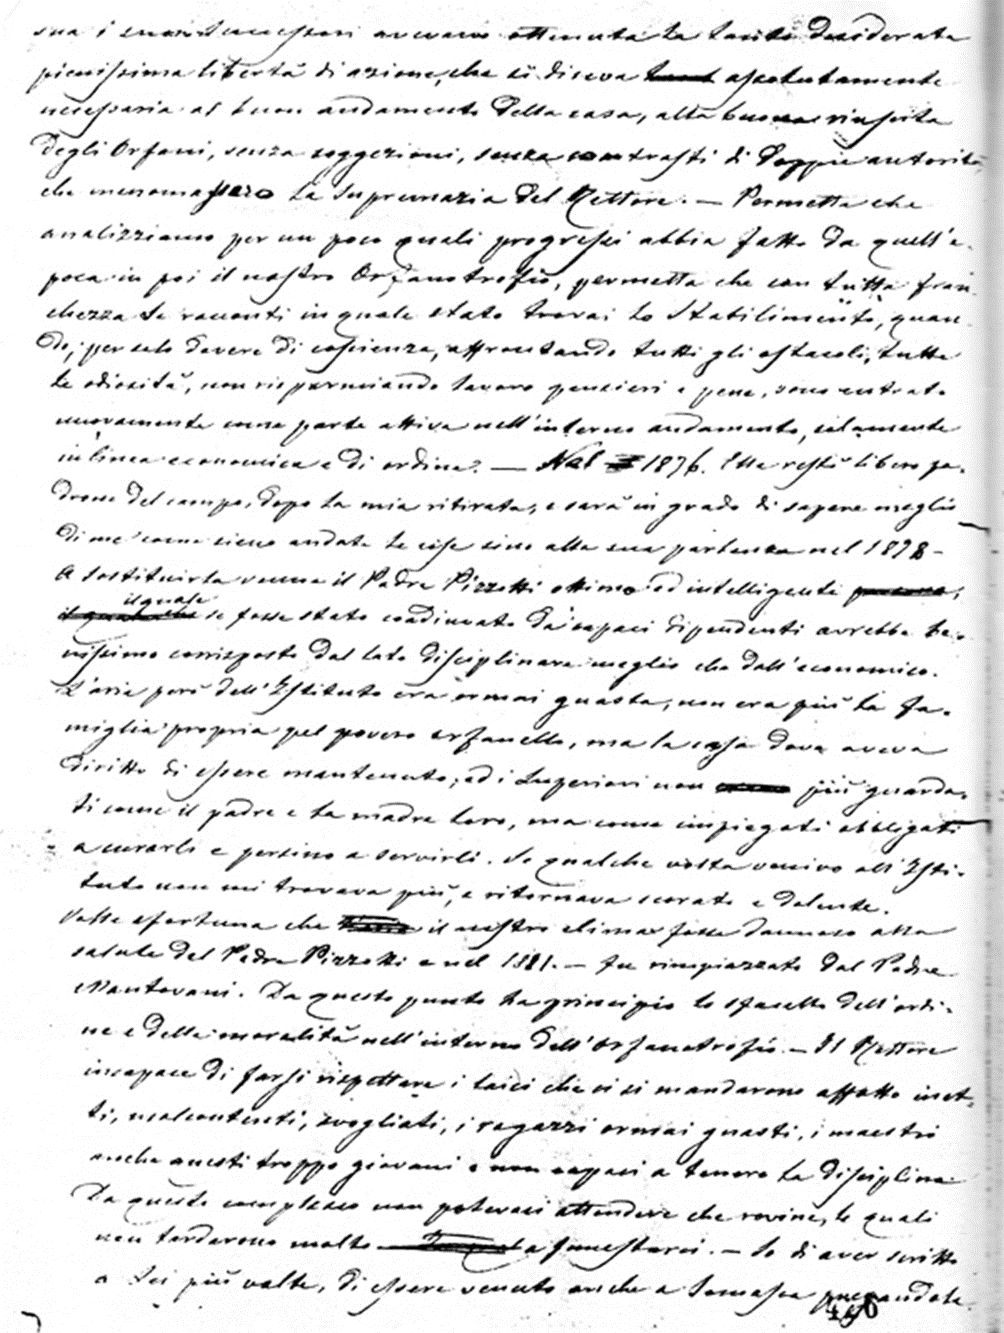 sua i suoi successori avevano ottenuta la tanto desiderata
pienissima libertà di azione, che si diceva assolutamente
necessaria al buon andamento della casa, alla buona riuscita
degli Orfani, senza soggezioni, senza contrasti di doppie autorità
che menomassero la supremazia del Rettore. — Permetta che
analizziamo per un poco quali progressi abbia fatto da quell'e-
poca in poi il nostro Orfanotrofio, permetta che con tutta fran-
chezza Le racconti in quale stato trovai lo Stabilimento, quan-
do, per solo dovere di coscienza, affrontando tutti gli ostacoli, tutte
le odiosità, non risparmiando lavoro pensieri e pene, sono entrato
nuovamente come parte attiva nell'interno andamento, solamente
in linea economica e di ordine. — Nel 1876. Ella restò libero pa-
drone del campo, dopo la mia ritirata, e sarà in grado di sapere meglio
di me come sieno andate le cose sino alla sua partenza nel 1878 —
A sostituirla venne il Padre Pizzotti ottimo ed intelligente persona,
il quale se fosse stato coadiuvato da capaci dipendenti avrebbe be-
nissimo corrisposto dal lato disciplinare meglio che dall'economico.
L'aria però dell'Istituto era ormai guasta, non era più la fa-
miglia propria pel povero orfanello, ma la casa dove aveva
diritto di essere mantenuto, ed i Superiori non più guarda-
ti come il padre e la madre loro, ma come impiegati obbligati
a curarli e persino a servirli. Se qualche volta venivo all'Isti-
tuto non mi trovava più, e ritornava scorato e dolente.
Volle sfortuna che il nostro clima fosse dannoso alla
salute del Padre Pizzotti e nel 1881. — fu rimpiazzato dal Padre
Mantovani. Da questo punto ha principio lo sfacello dell'ordi-
ne e della moralità nell'interno dell'Orfanotrofio. — Il Rettore
incapace di farsi rispettare, i laici che ci si mandarono affatto inet-
ti, malcontenti, svogliati, i ragazzi ormai guasti, i maestri
anche questi troppo giovani e non capaci a tenere la disciplina
Da questo complesso non potevasi attendere che rovine, le quali
non tardarono molto a funestarci. — Io di aver scritto
a Lei più volte, di essere venuto anche a Somasca pregandola